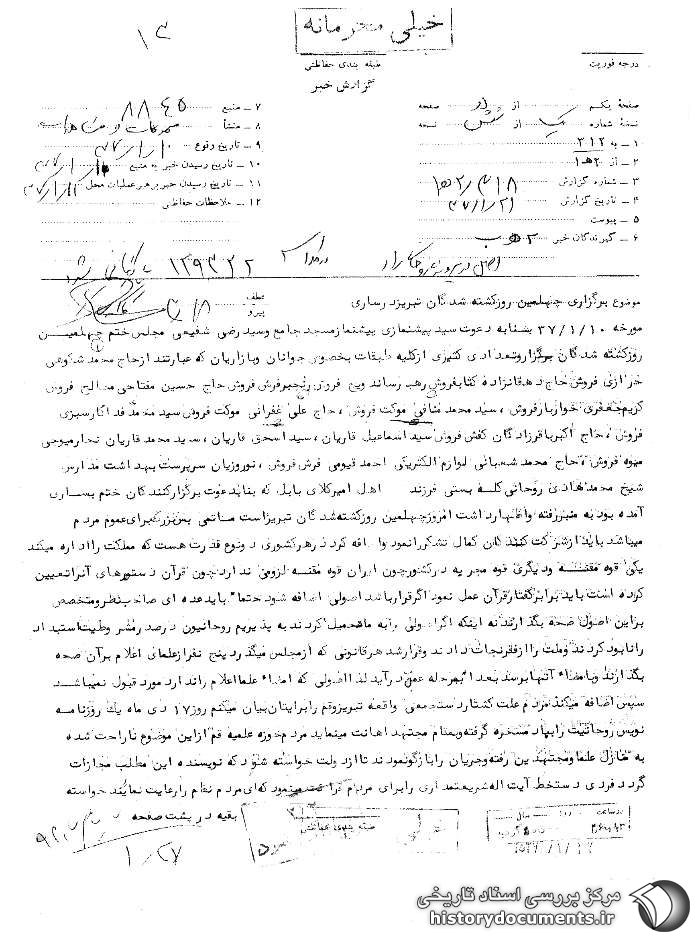 خیلی محرمانه
۱۳
طبقه بندی حفاظتی
درجه فوریت
گزارش خبر
صفحه یکم از دو صفحه
نسخه شماره یک از شش نسخه
۱ - به ۳۱۲
۲ - از ۲ ه ۱
۳ - شماره گزارش
۴ - تاریخ گزارش ۳۷/۱/۲۱
۵ - پیوست
۶ - گیرندگان خبر
۷ - منبع ۸۸۴۵
۸ - منشأ
۹ - تاریخ وقوع ۳۷/۱/۱۰
۱۰ - تاریخ رسیدن خبر به منبع
۱۱ - تاریخ رسیدن خبر برهبر عملیات محل
۱۲ - ملاحظات حفاظتی
۱۳۹۳۲۲
بایگانی شود
موضوع برگزاری چهلمین روز کشته شدگان تبریز در ساری
عطف
پیرو
مورخه ۳۷/۱/۱۰ بنا به دعوت سید پیشنمازی پیشنماز مسجد جامع و سید رضی شفیعی مجلس ختم چهلمین
روز کشته شدگان برگزار و تعدادی کثیری از کلیه طبقات بخصوص جوانان و بازاریان که عبارتند از حاج محمد شکوهی
خرازی فروش حاج دهقانزاده کتابفروشی رهبر رنجبر فرش فروش حاج حسین مفتاحی مصالح فروش
کریم جعفری خواربارفروش ، سید محمد شافی موکت فروش ، حاج علی غفرانی موکت فروش سید محمد فداکار سبزی
فروش ، حاج اکبر باقرزادگان کفش فروش سید اسماعیل قاریان ، سید اسحق قاریان ، سید محمد قاریان نجار میوه‌چی
میوه فروش ، حاج محمد شعبانی لوازم الکتریکی احمد قیومی فرش فروش ، نوروزیان سرپرست بهداشت مدارس
شیخ محمد هادی روحانی کله بستی فرزند اهل امیرکلای بابل که بنا بدعوت برگزارکنندگان ختم بساری
آمده بود به منبر رفته و اظهار داشت امروز چهلمین روز کشته شدگان تبریز است برای عموم مردم
میباشد باید از شرکت کنندگان کمال تشکر را نمود و اضافه کرد در هر کشوری دو نوع قدرت هست که مملکت را اداره میکند
یکی قوه مقننه و دیگری قوه مجریه در کشور چون ایران قوه مقننه لزومی ندارد چون قرآن دستورهای آنرا تعیین
کرده است باید برابر گفتار قرآن عمل نمود اگر قرار باشد اصولی اضافه شود حتما" باید عده ای صاحب نظر و متخصص
براین اصول صحه بگذارند نه اینکه اگر اصولی را به ما تحمیل کردند به پذیریم روحانیون در صدر مشروطیت استبداد
را نابود کردند و ملت را از فقر نجات دادند و قرار شد هر قانونی که از مجلس میگذرد پنج نفر از علمای اعلام برآن صحه
بگذارند و بامضاء آنها برسد بعدا" بمرحله عمل درآید لذا اصولی که امضاء علما اعلام را ندارد مورد قبول نمیباشد
سپس اضافه میکند مردم علت کشتار دستجمعی واقعه تبریز و قم را برایتان بیان میکنم روز ۱۷ دی ماه یک روزنامه
نویس روحانیت را بباد مسخره گرفته و بمقام مجتهد اهانت مینماید مردم حوزه علمیه قم از این موضوع ناراحت شده
به منازل علما و مجتهدین رفته و جریان را بازگو نمودند تا از دولت خواسته شود که نویسنده این مطلب مجازات
گردد فردی دستخط آیت اله شریعتمداری را برای مردم قرائت مینمود که ای مردم نظم را رعایت نمایند خواسته
بقیه در پشت صفحه
خیلی
طبقه بندی حفاظتی
۱/۲۷
مرکز بررسی اسناد تاریخی
historydocuments.ir